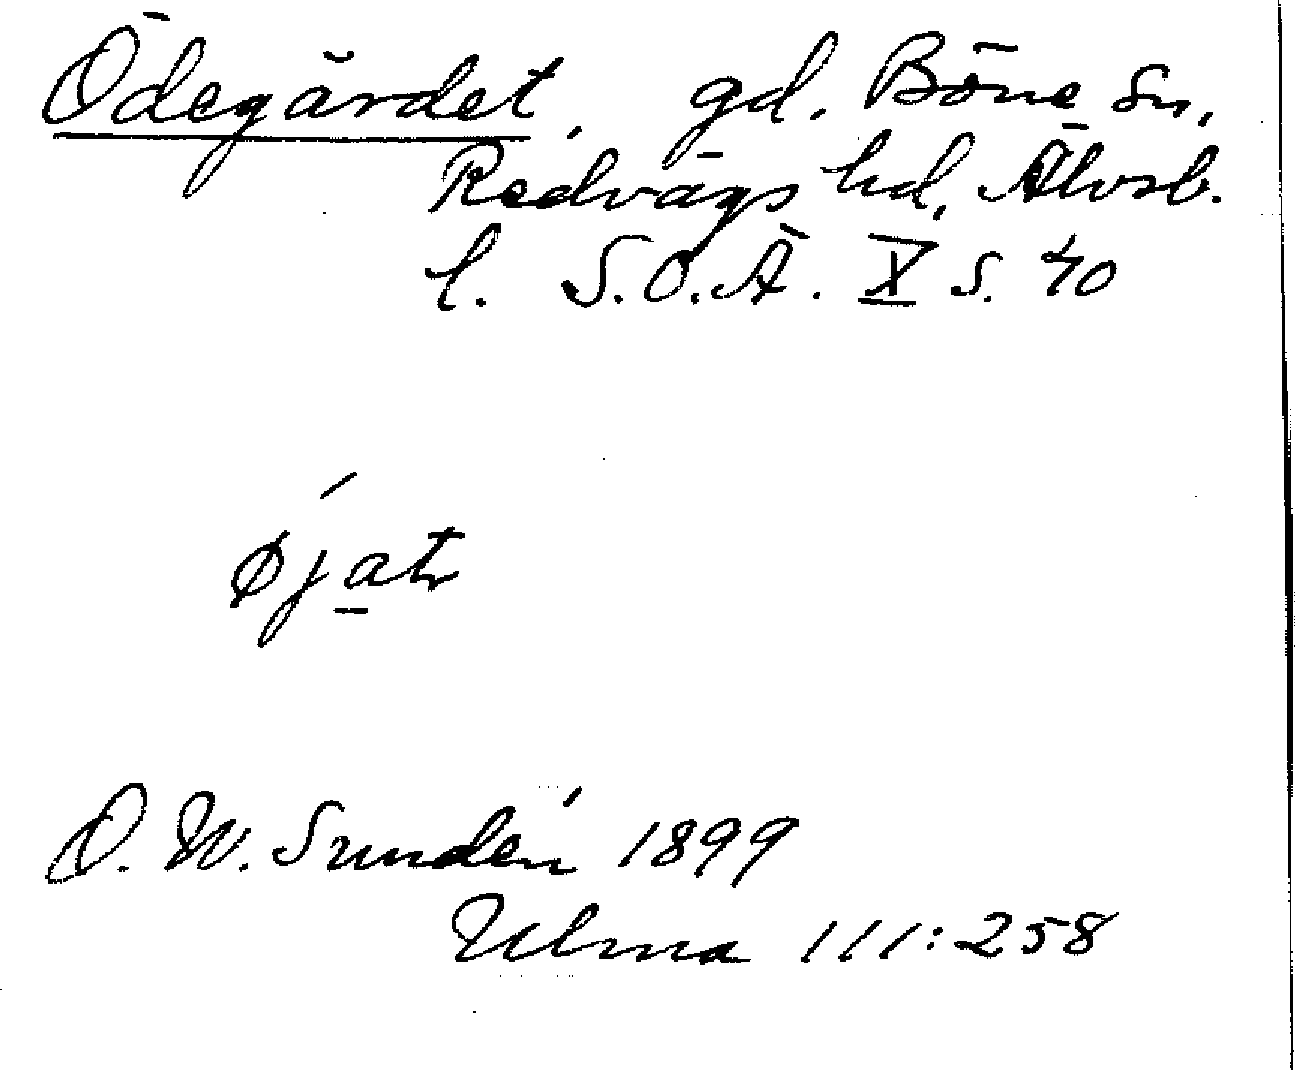 Ödegärdet, gd. Böne sn,
Redvägs hd, Älvsb.
l. S.O.Ä. X s. 40
O. W. Sundén 1899
Ulma 111:258